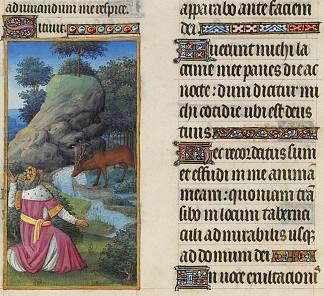 adiuuandum me respice.
Sicut
apparabo ante faciem
dei
Fuerunt michi la
crime mee panes die ac
nocte: dum dicitur mi
chi cotidie ubi est deus
tuus
Hec recordatus sum
et effudi in me animam
meam: quoniam tran
sibo in locum taberna
culi admirabilis usqz
ad domum dei
In uoce exultacionis